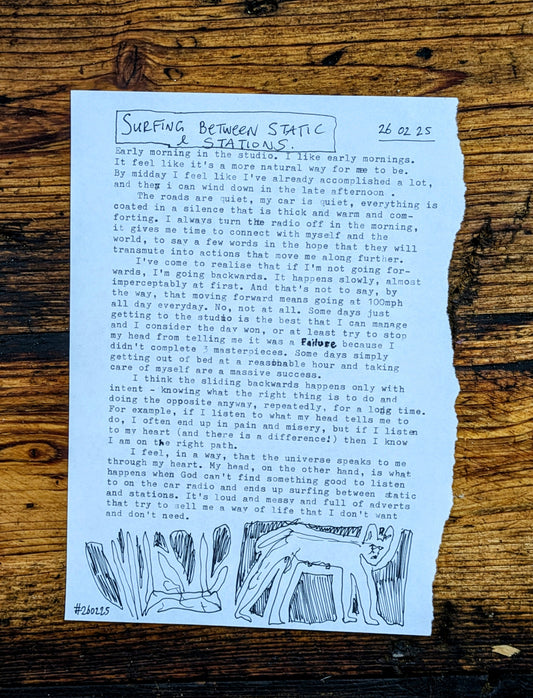 SURFING BETWEEN STATIC
& STATIONS.
26 02 25
Early morning in the studio. I like early mornings.
It feel like it's a more natural way for me to be.
By midday I feel like I've already accomplished a lot,
and they i can wind down in the late afternoon .
The roads are quiet, my car is quiet, everything is
coated in a silence that is thick and warm and com-
forting. I always turn the radio off in the morning,
it gives me time to connect with myself and the
world, to say a few words in the hope that they will
transmute into actions that move me along further.
I've come to realise that if I'm not going for-
wards, I'm going backwards. It happens slowly, almost
imperceptably at first. And that's not to say, by
the way, that moving forward means going at 100mph
all day everyday. No, not at all. Some days just
getting to the studio is the best that I can manage
and I consider the day won, or at least try to stop
my head from telling me it was a failure because I
didn't complete 3 masterpieces. Some days simply
getting out of bed at a reasonable hour and taking
care of myself are a massive success.
I think the sliding backwards happens only with
intent - knowing what the right thing is to do and
doing the opposite anyway, repeatedly, for a long time.
For example, if I listen to what my head tells me to
do, I often end up in pain and misery, but if I listen
to my heart (and there is a difference!) then I know
I am on the right path.
I feel, in a way, that the universe speaks to me
through my heart. My head, on the other hand, is what
happens when God can't find something good to listen
to on the car radio and ends up surfing between static
and stations. It's loud and messy and full of adverts
that try to sell me a way of life that I don't want
and don't need.
#260225